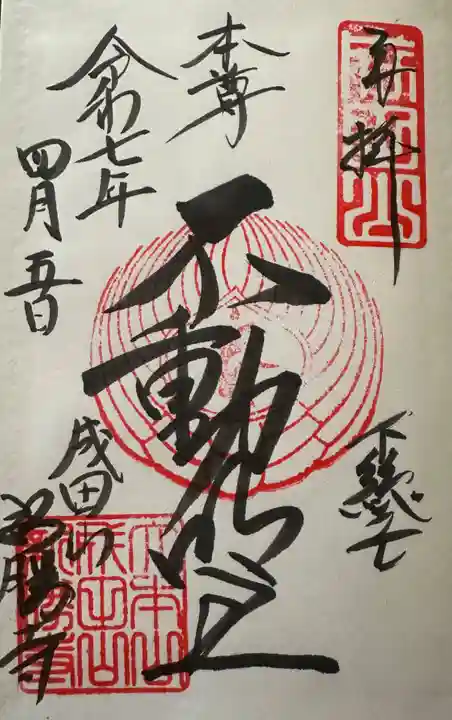 奉拝
下総
本尊
不動明王
令和七年
四月五日
成田山
新勝寺
大本山
成田山
新勝寺